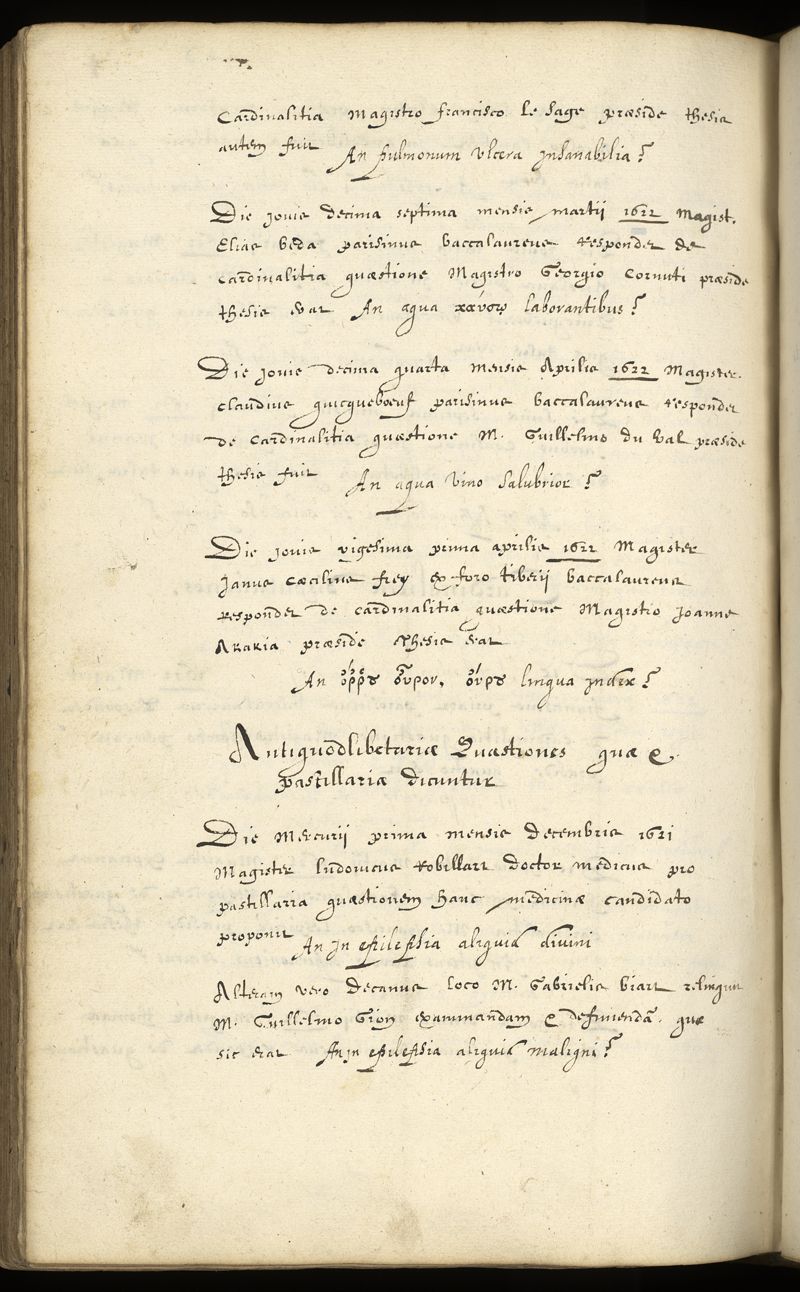 Cardinalitia Magistro francisco le sage præside thesis
autem fuit An pulmonum ulcera insanabilia?
Die jovis decima septima mensis martii 1622 Magist.
Elias beda parisinus baccalaureus respondet de
cardinalitia quæstione Magistro Georgio Cornuti præside
thesis erat An aqua laborantibus?
Die jovis decima quarta mensis Aprilis 1622 Magister
claudius quicquebœuf parisinus baccalaureus respondet
de cardinalitia quæstione M. Guillelmo du val præside
thesis fuit An aqua vino salubrior?
Die jovis vigesima prima aprilis 1622 Magister
Janus cæcilius frey ex foro tiberii baccalaureus
respondet de cardinalitia quæstione Magistro Joanne
Akakia præside thesis erat
An lingua index?
Antiquodlibetariæ Quæstiones quæ &
pastillaria dicuntur
Die Mercurii prima mensis decembris 1621
Magister ludovicus Robillart doctor medicus pro
pastillaria quæstionem hanc medicinæ candidato
proponit An in epilepsia aliquid divini
Alteram vero decanus loco M. Gabrielis biart relinquit
M. Guillelmo examinandam & definiendã. quæ
sic erat An in epilepsia aliquid maligni?